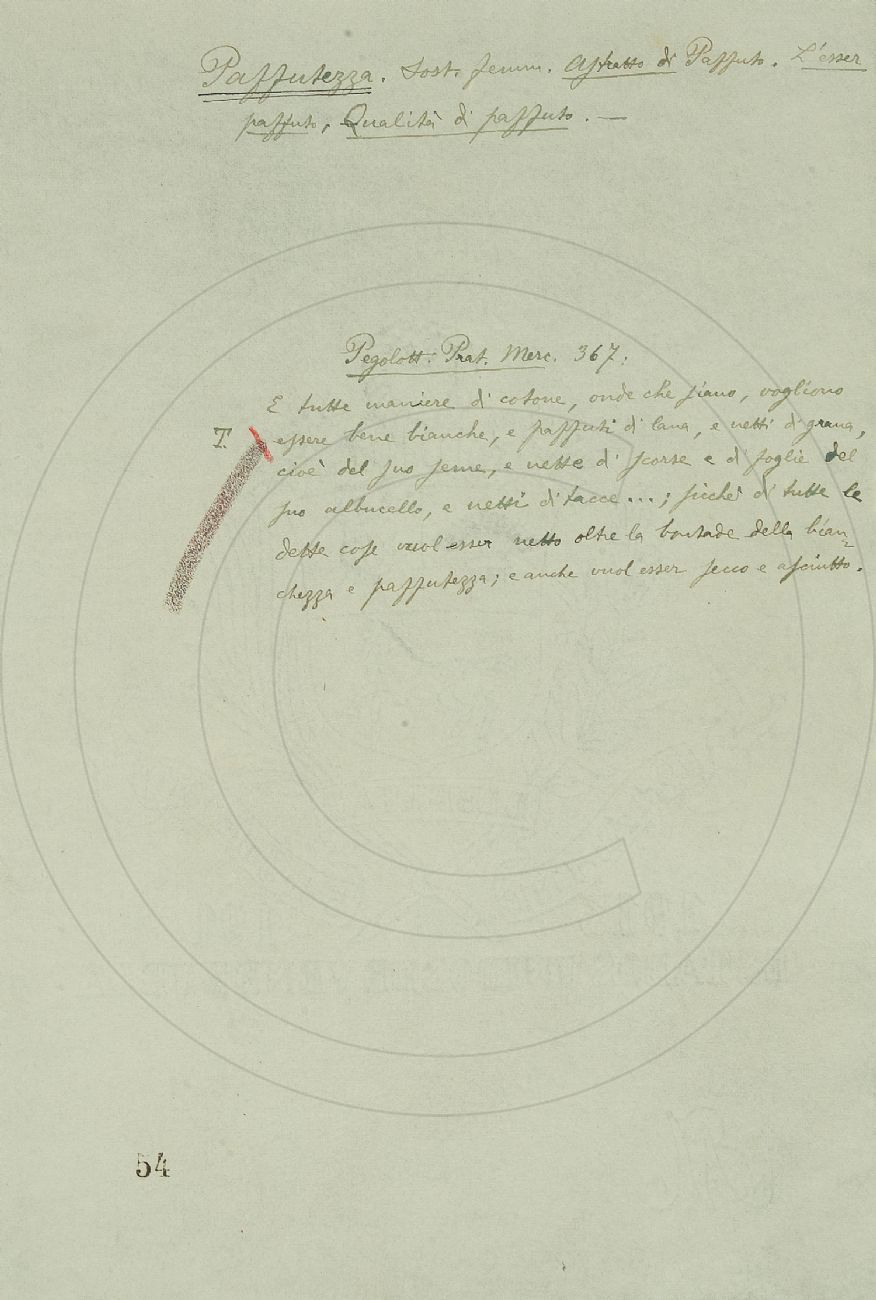 Paffutezza. Sost. femm. Astratto di Paffuto. L'esser
paffuto, Qualità di paffuto. —
Pegolott. Prat. Merc. 367:
E tutte maniere di cotone, onde che siano, vogliono
T. essere bene bianche, e paffuti di lana, e netti di grana,
cioè del suo seme, e nette di scorse e di foglie del
suo albucello, e netti di tacce...; sicchè di tutte le
dette cose vuol esser netto oltre la bontade della bian-
chezza e paffutezza; e anche vuol esser secco e asciutto.
54